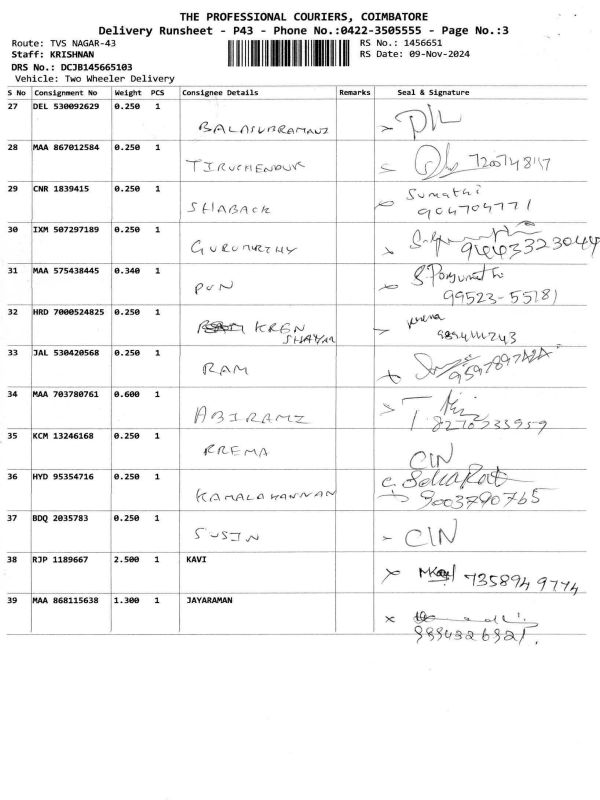 THE PROFESSIONAL COURIERS, COIMBATORE
Delivery Runsheet - P43 - Phone No.:0422-3505555 - Page No.:3
Route: TVS NAGAR-43
RS No.: 1456651
Staff: KRISHNAN
RS Date: 09-Nov-2024
DRS No.: DCJB145665103
Vehicle: Two Wheeler Delivery
S No Consignment No Weight PCS Consignee Details Remarks Seal & Signature
27 DEL 530092629 0.250 1
BALASUBRAMANI
28 MAA 867012584 0.250 1
TIRUCHENDUR
29 CNR 1839415 0.250 1
SHABACK Sumathi
904704771
30 IXM 507297189 0.250 1
GURUMRTHY 9443323044
31 MAA 575438445 0.340 1
PON
99523-55181
32 HRD 7000524825 0.250 1
KREN
SHAYAM
33 JAL 530420568 0.250 1
RAM
34 MAA 703780761 0.600 1
ABIRAMI
35 KCM 13246168 0.250 1
RREMA
CIN
36 HYD 95354716 0.250 1
KAMALAKANNAN 9003790765
37 BDQ 2035783 0.250 1
SUSIN CIN
38 RJP 1189667 2.500 1 KAVI
7358949774
39 MAA 868115638 1.300 1 JAYARAMAN